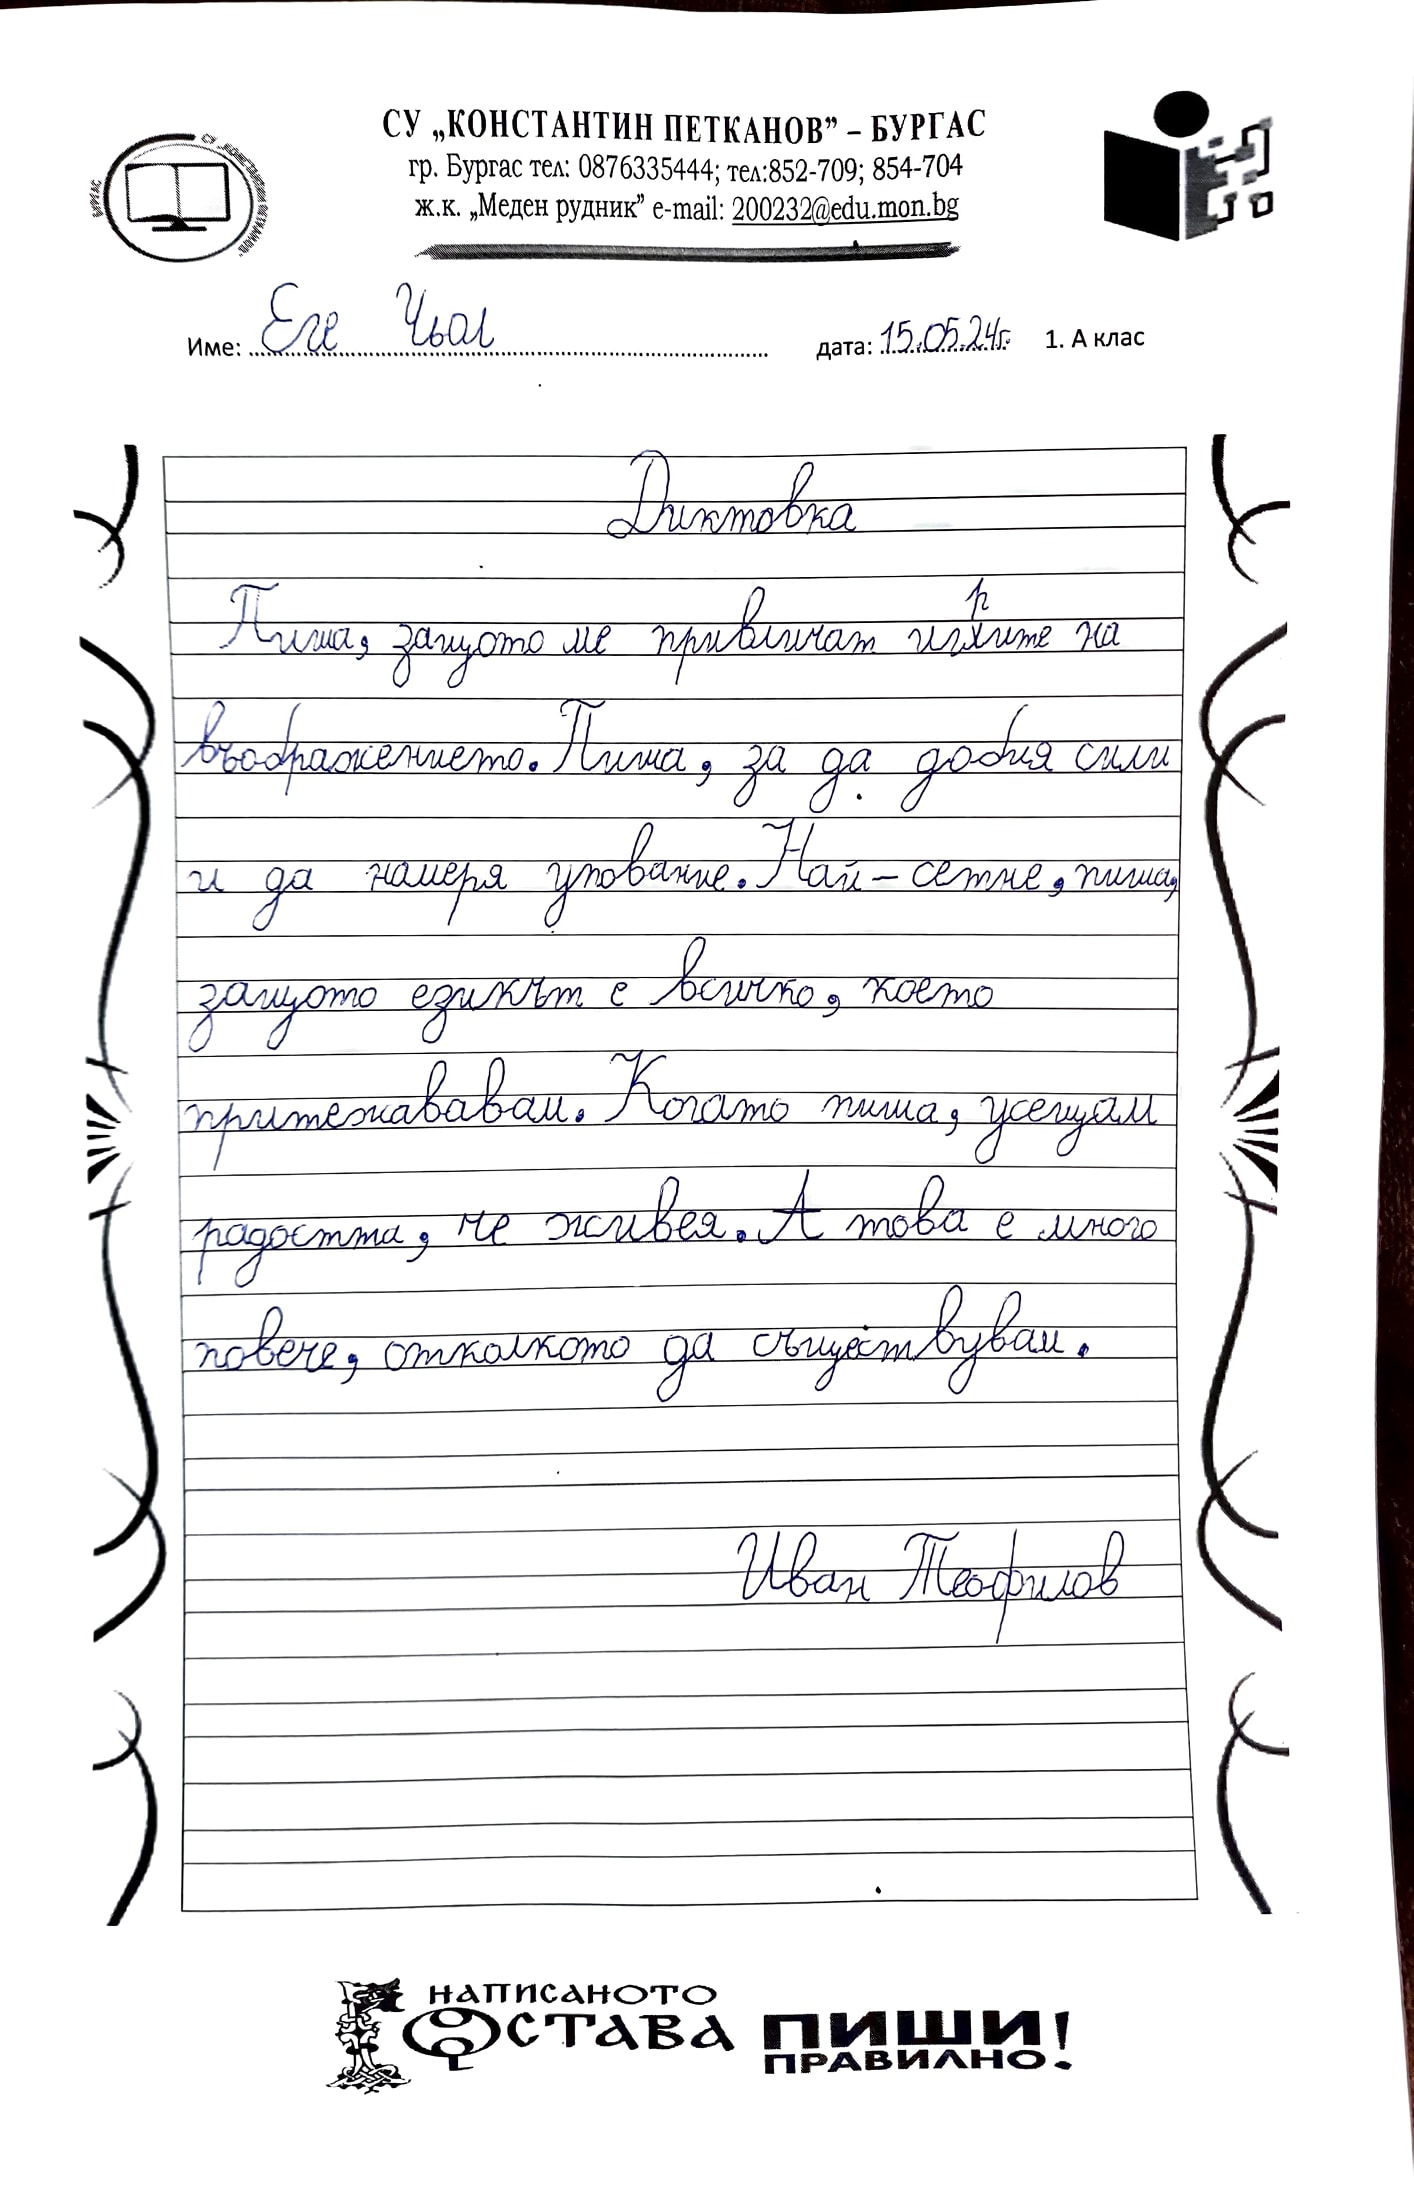 СУ „КОНСТАНТИН ПЕТКАНОВ” – БУРГАС
гр. Бургас тел: 0876335444; тел:852-709; 854-704
ж.к. „Меден рудник” e-mail: 200232@edu.mon.bg
Име: Еге Чьол дата: 15.05.24г. 1. А клас
Диктовка
Пиша, защото ме привличат игрите на
въображението. Пиша, за да добия сили
и да намеря упование. Най-сетне, пиша,
защото езикът е всичко, което
притежававам. Когато пиша, усещам
радостта, че живея. А това е много
повече, отколкото да съществувам.
Иван Теофилов
НАПИСАНОТО
ОСТАВА ПИШИ
ПРАВИЛНО!